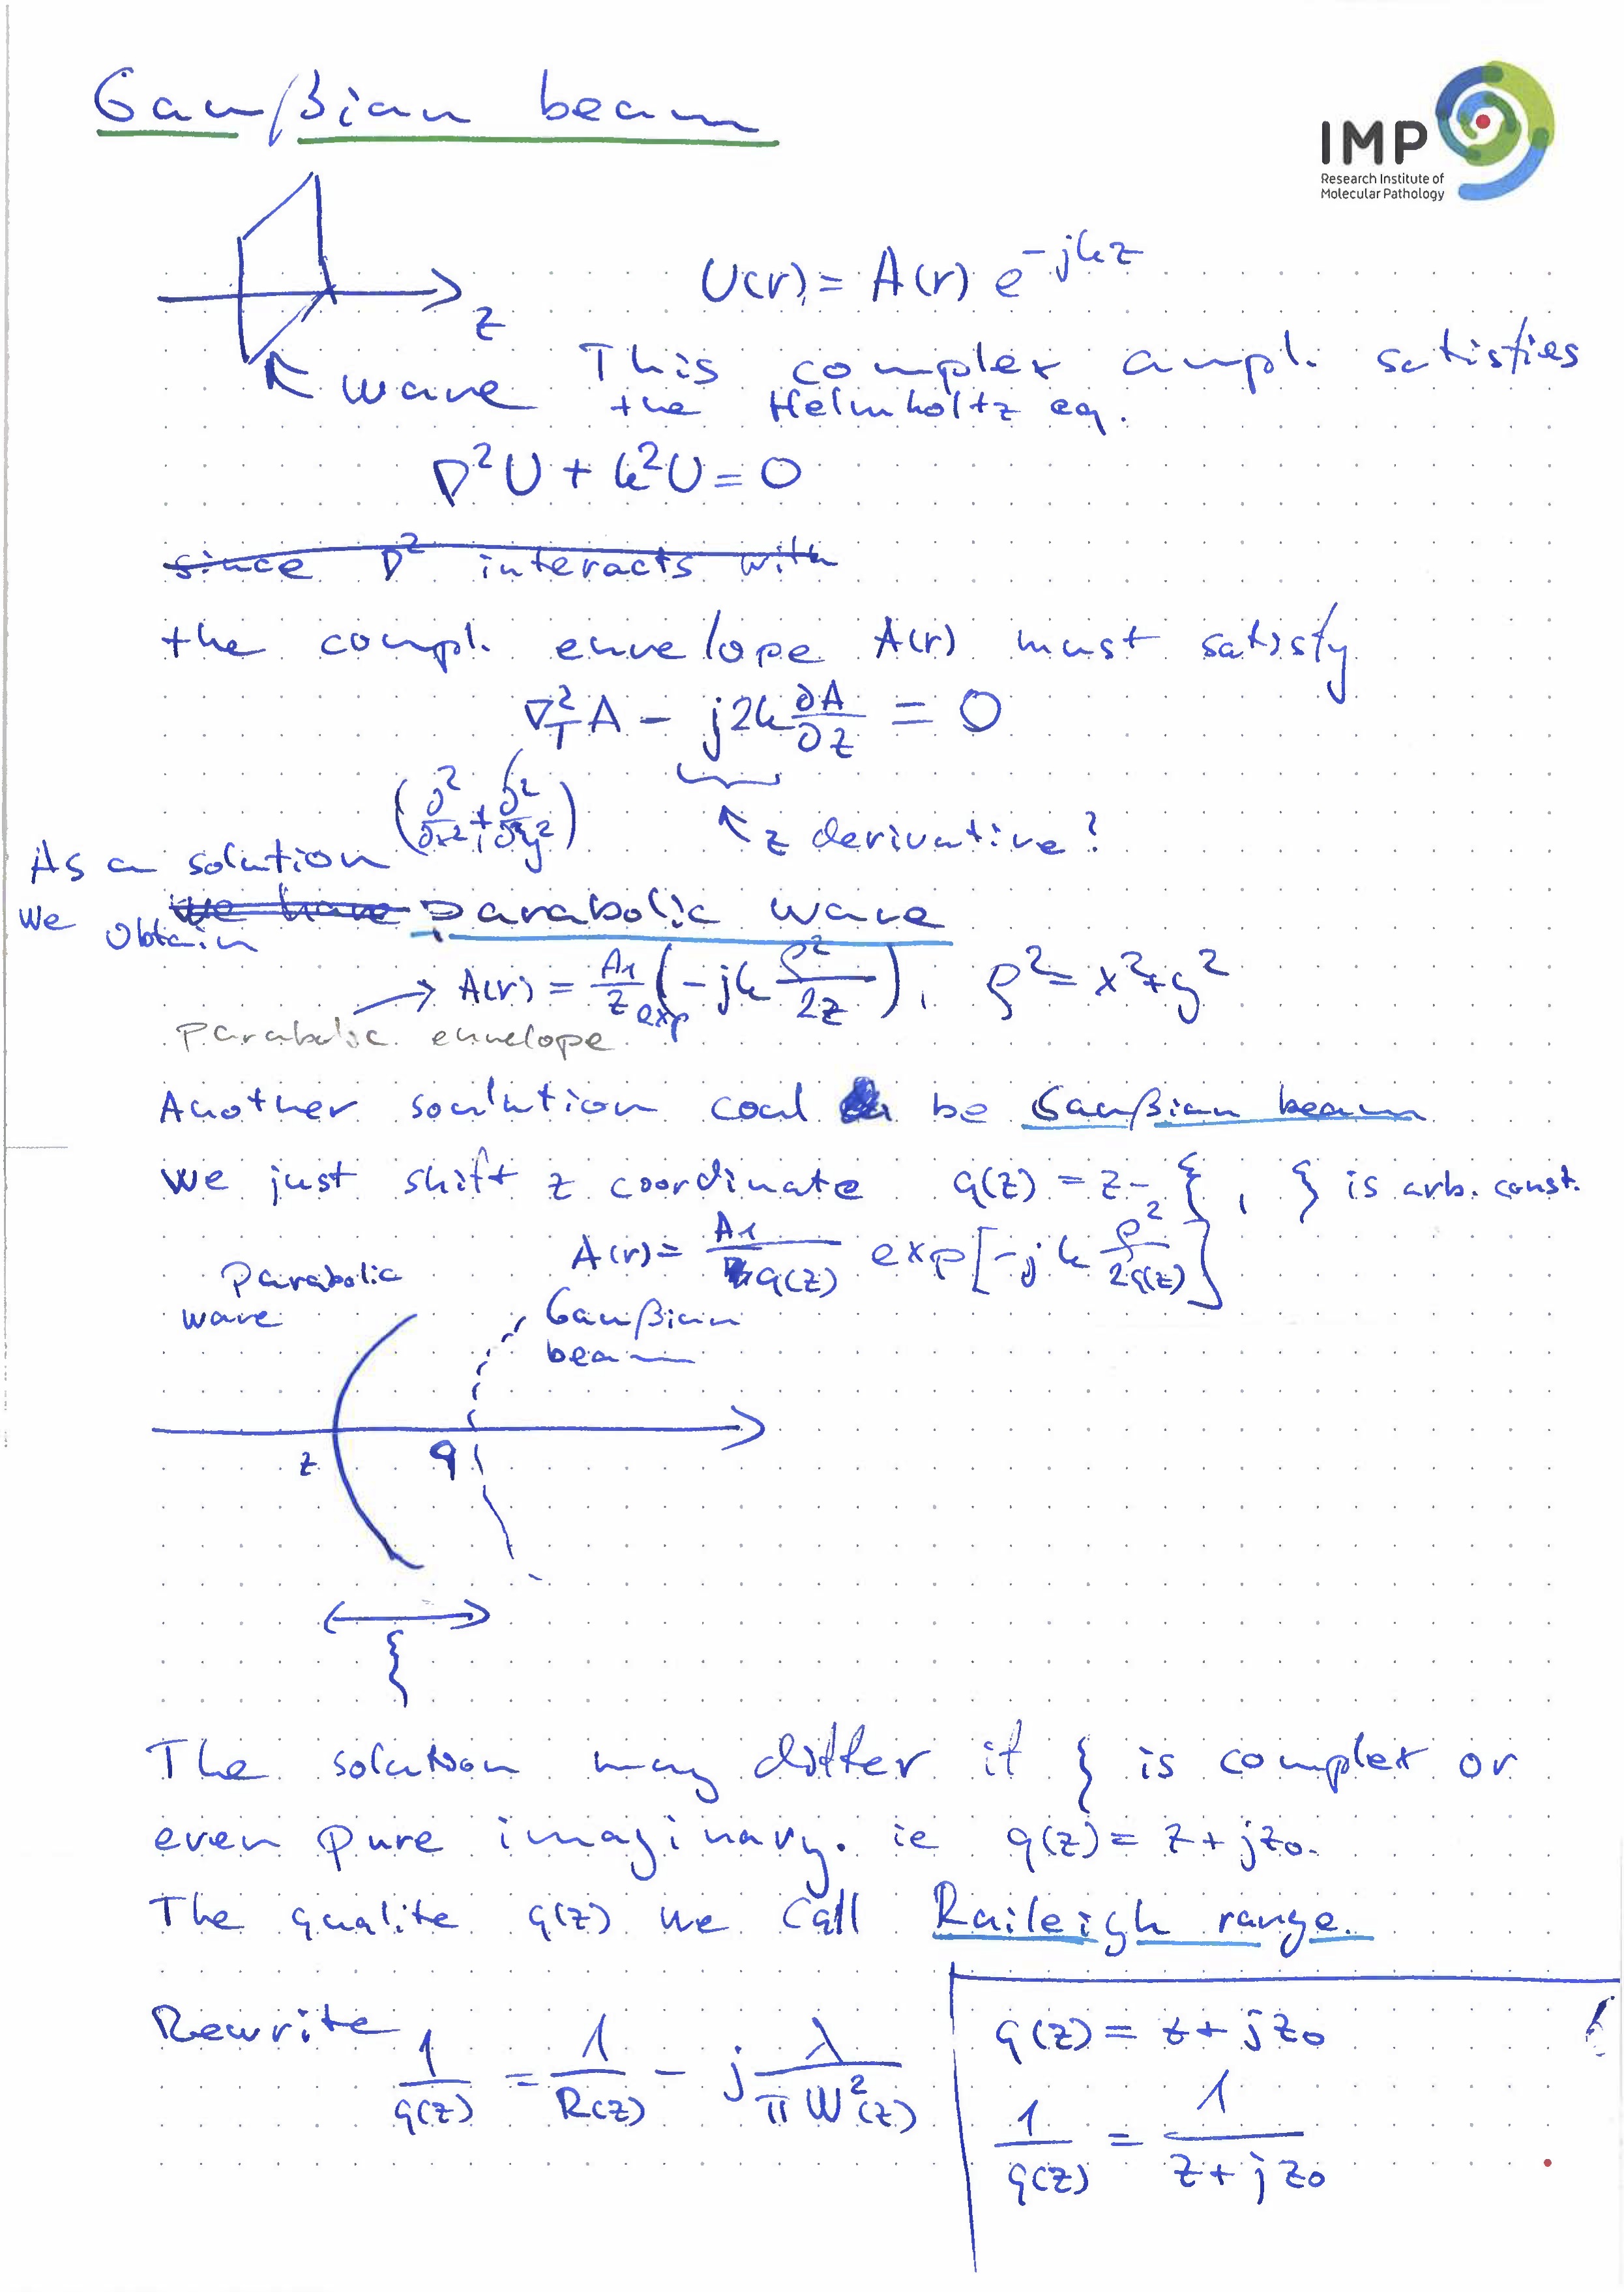 Gaußian beam
IMP
Research Institute of
Molecular Pathology
U(r) = A(r) e^{-jkz}
z
wave This complex ampl. satisfies
the Helmholtz eq.
∇²U + k²U = 0
since ∇² interacts with
the compl. envelope A(r) must satisfy
∇_T² A - j2k ∂A/∂z = 0
(∂²/∂x² + ∂²/∂y²)
z derivative?
As a solution
we obtain we have parabolic wave
A(r) = A₁/z exp(-jk ρ²/2z), ρ² = x²+y²
parabolic envelope
Another soulution coul be Gaußian beam
we just shift z coordinate q(z) = z - ξ, ξ is arb. const.
A(r) = A₁/q(z) exp[-jk ρ²/2q(z)]
Parabolic
wave
Gaußian
beam
z q
ξ
The solution may differ if ξ is complex or
even pure imaginary. ie q(z) = z + jz₀.
The qualite q(z) we call Raileigh range.
Rewrite
1/q(z) = 1/R(z) - j λ/πW²(z)
q(z) = z + jz₀
1/q(z) = 1/(z + jz₀)